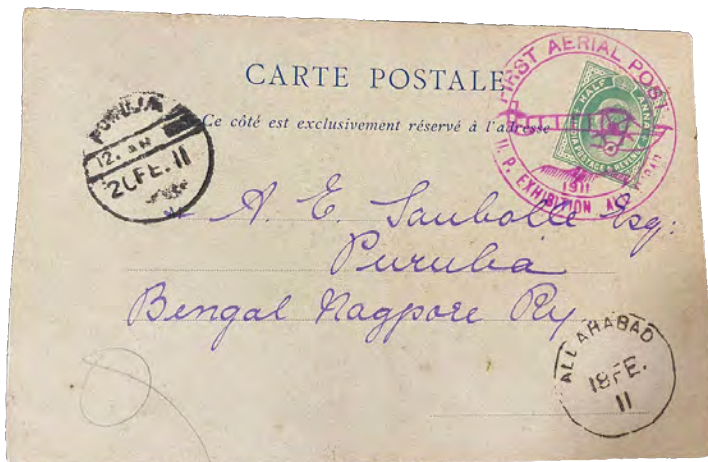 CARTE POSTALE
Ce côté est exclusivement réservé à l'adresse
FIRST AERIAL POST
1911
U. P. EXHIBITION
HALF ANNA
POSTAGE & REVENUE
12.
20 FE. 11
A. E. Saubolle Esq:
Purulia
Bengal Nagpore Ry
ALLAHABAD
18 FE.
11